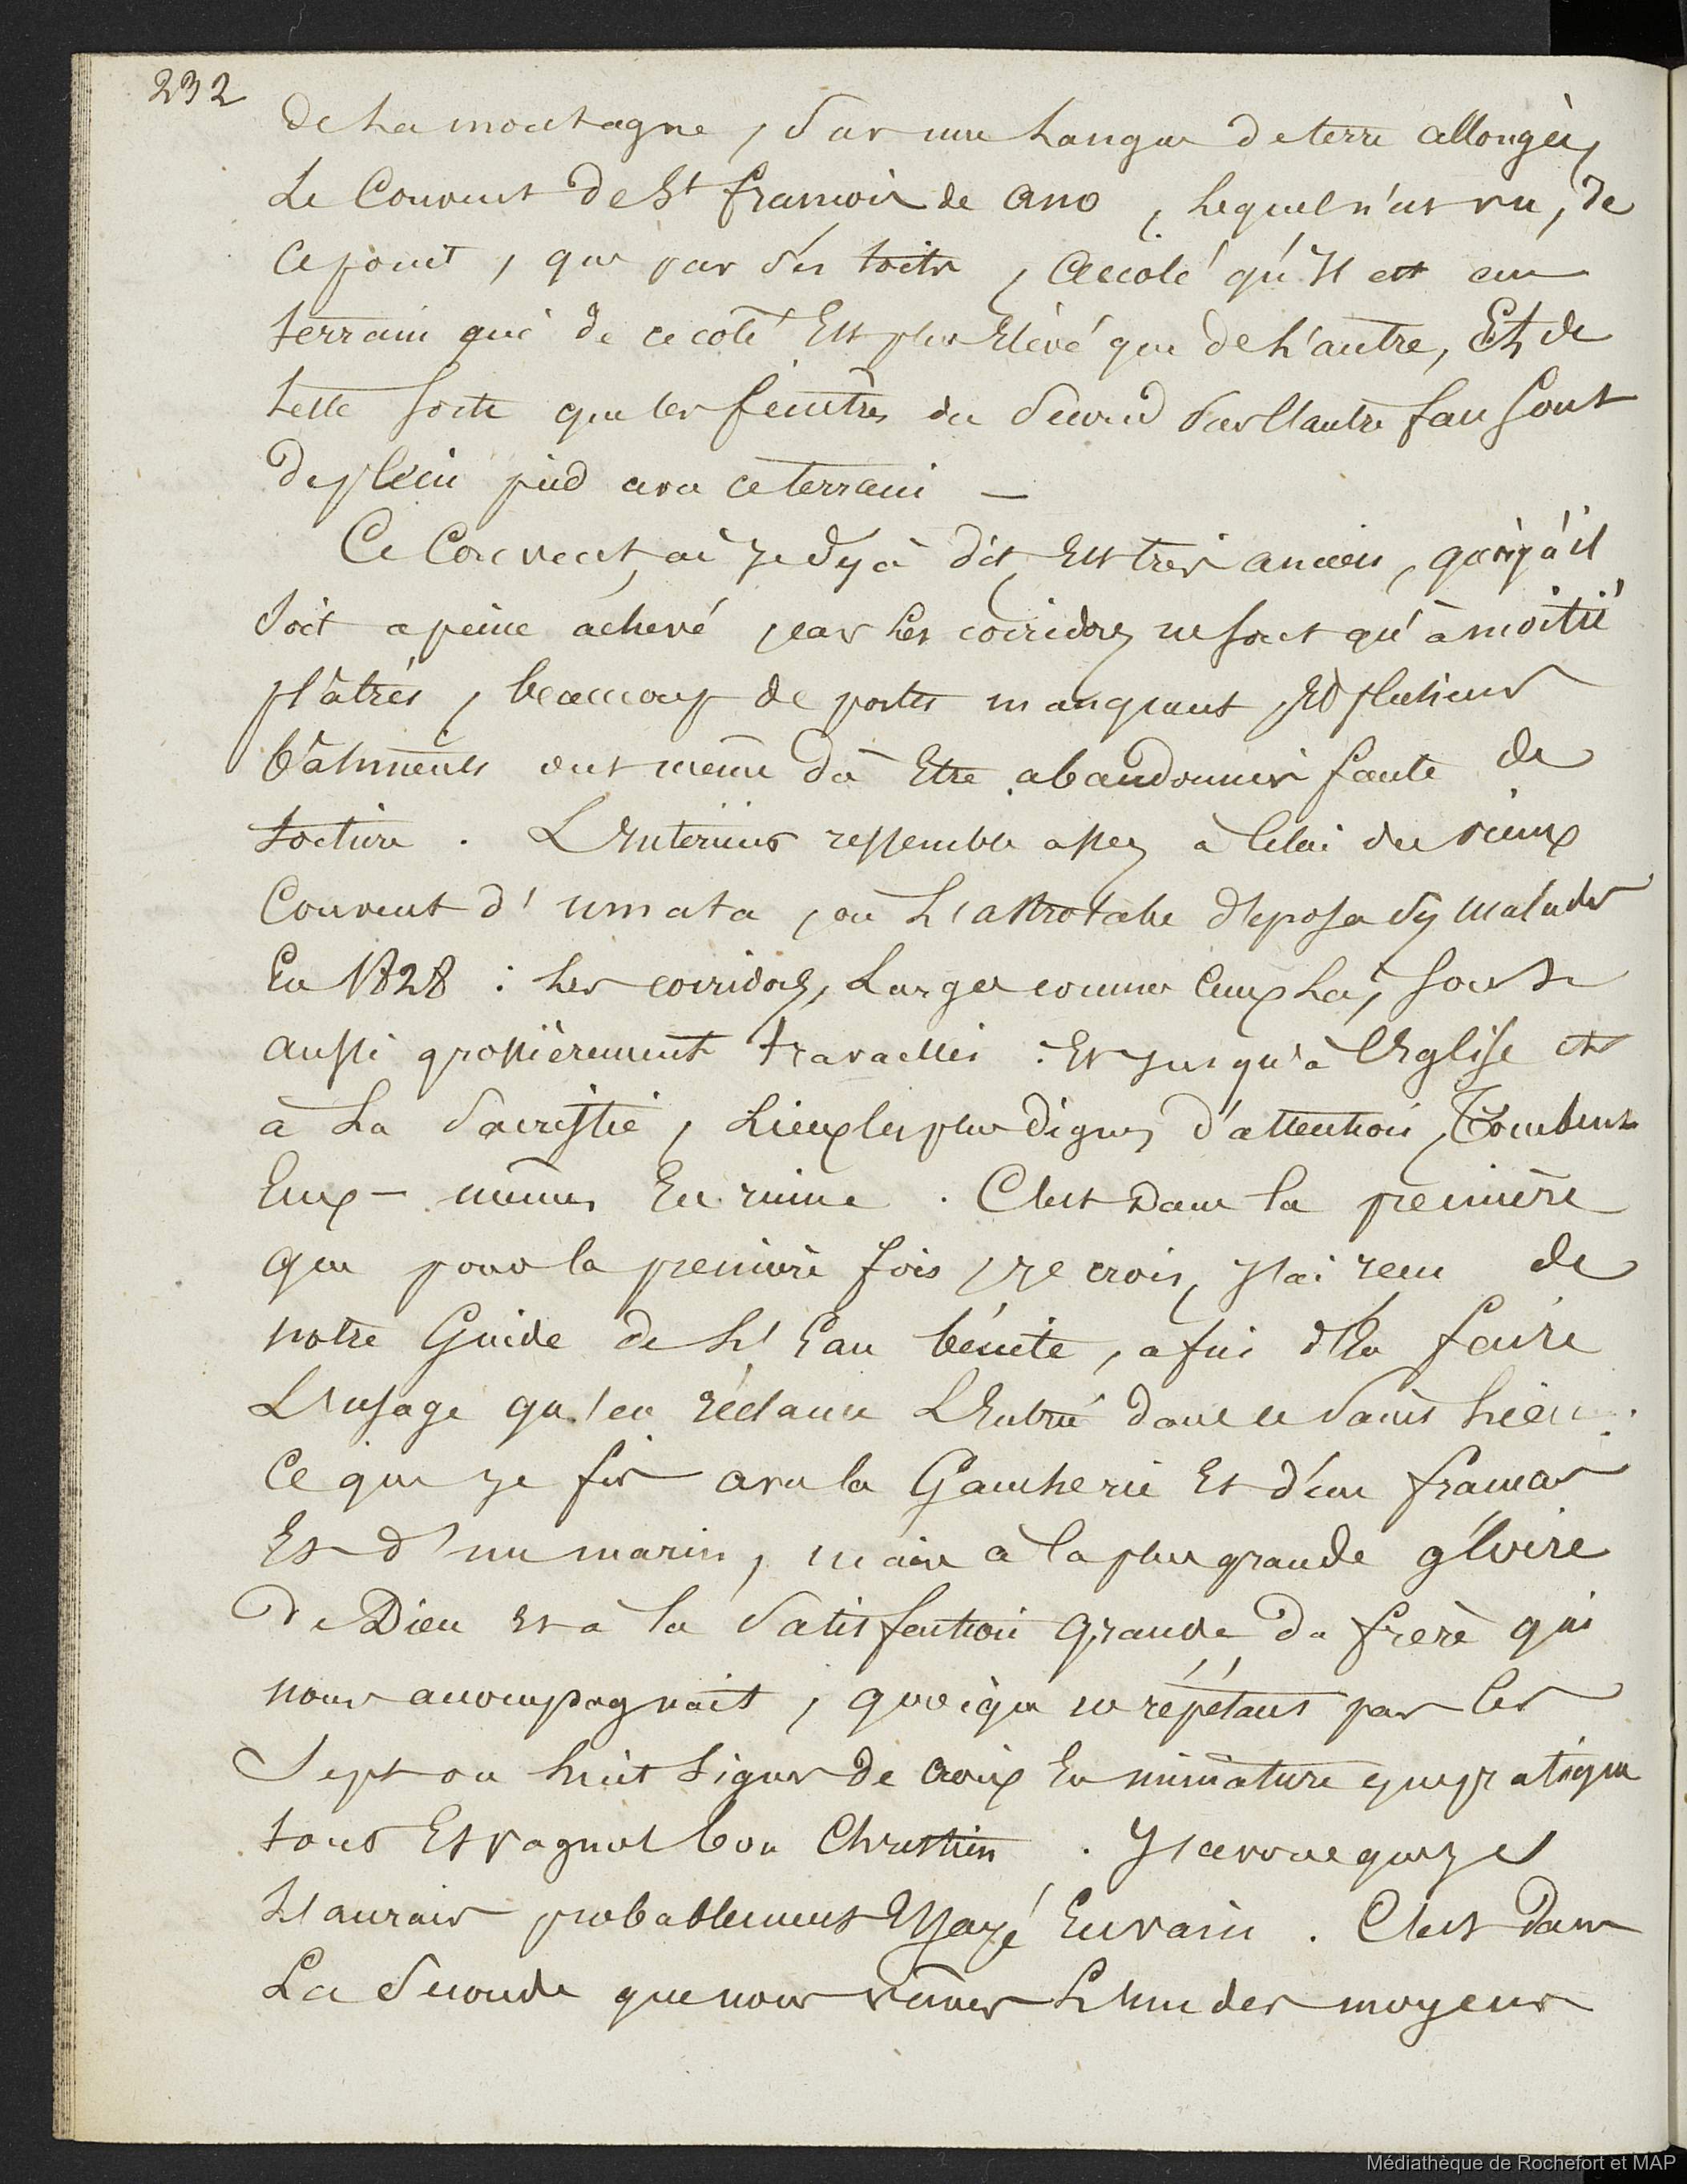 232
de La montagne, sur une Langue de terre allongée,
Le Couvent de St françois de ano, Lequel n'est vu, de
ce point, que par ses toits, accolé qu'Il est au
terrain qui de ce côté Est plus Elevé que de L'autre, Et de
telle sorte que les fenêtres du second sur l'autre face sont
de plein pied avec ce terrain —
Ce Couvent, ai je déjà dit, Est très ancien, quoiqu'il
soit a peine achevé, car Les corridors ne sont qu'à moitié
plâtrés, beaucoup de portes manquent, Et plusieurs
bâtiments ont même dû Etre abandonnés faute de
toiture. L'Interieur ressemble assez à Celui du vieux
Couvent d'umata, où L'astrolabe déposa ses malades
En 1828 : Les corridors, Larges comme Ceux Là, sont
aussi grossièrement travaillés : Et jusqu'à l'Eglise et
à La sacristie, Lieux les plus dignes d'attention, Tombent
Eux-mêmes En ruine. C'est dans la première
que pour la première fois, je crois, j'ai reçu de
notre Guide de L'Eau bénite, afin d'En faire
L'usage qu'en réclame L'Entrée dans le saint Lieu :
Ce que je fis avec la Gaucherie Et d'un français
Et d'un marin, mais à la plus grande gloire
De Dieu Et à la satisfaction grande du frère qui
nous accompagnait, quoique ne répétant pas les
sept ou huit signes de croix En miniature que pratique
tout Espagnol bon Chrestien. J'avoue que je
L'aurais probablement Essayé En vain. C'est dans
La seconde que nous vimes L'un des moyens
Médiathèque de Rochefort et MAP